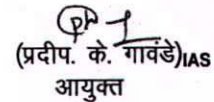 (प्रदीप. के. गावंडे)IAS
आयुक्त